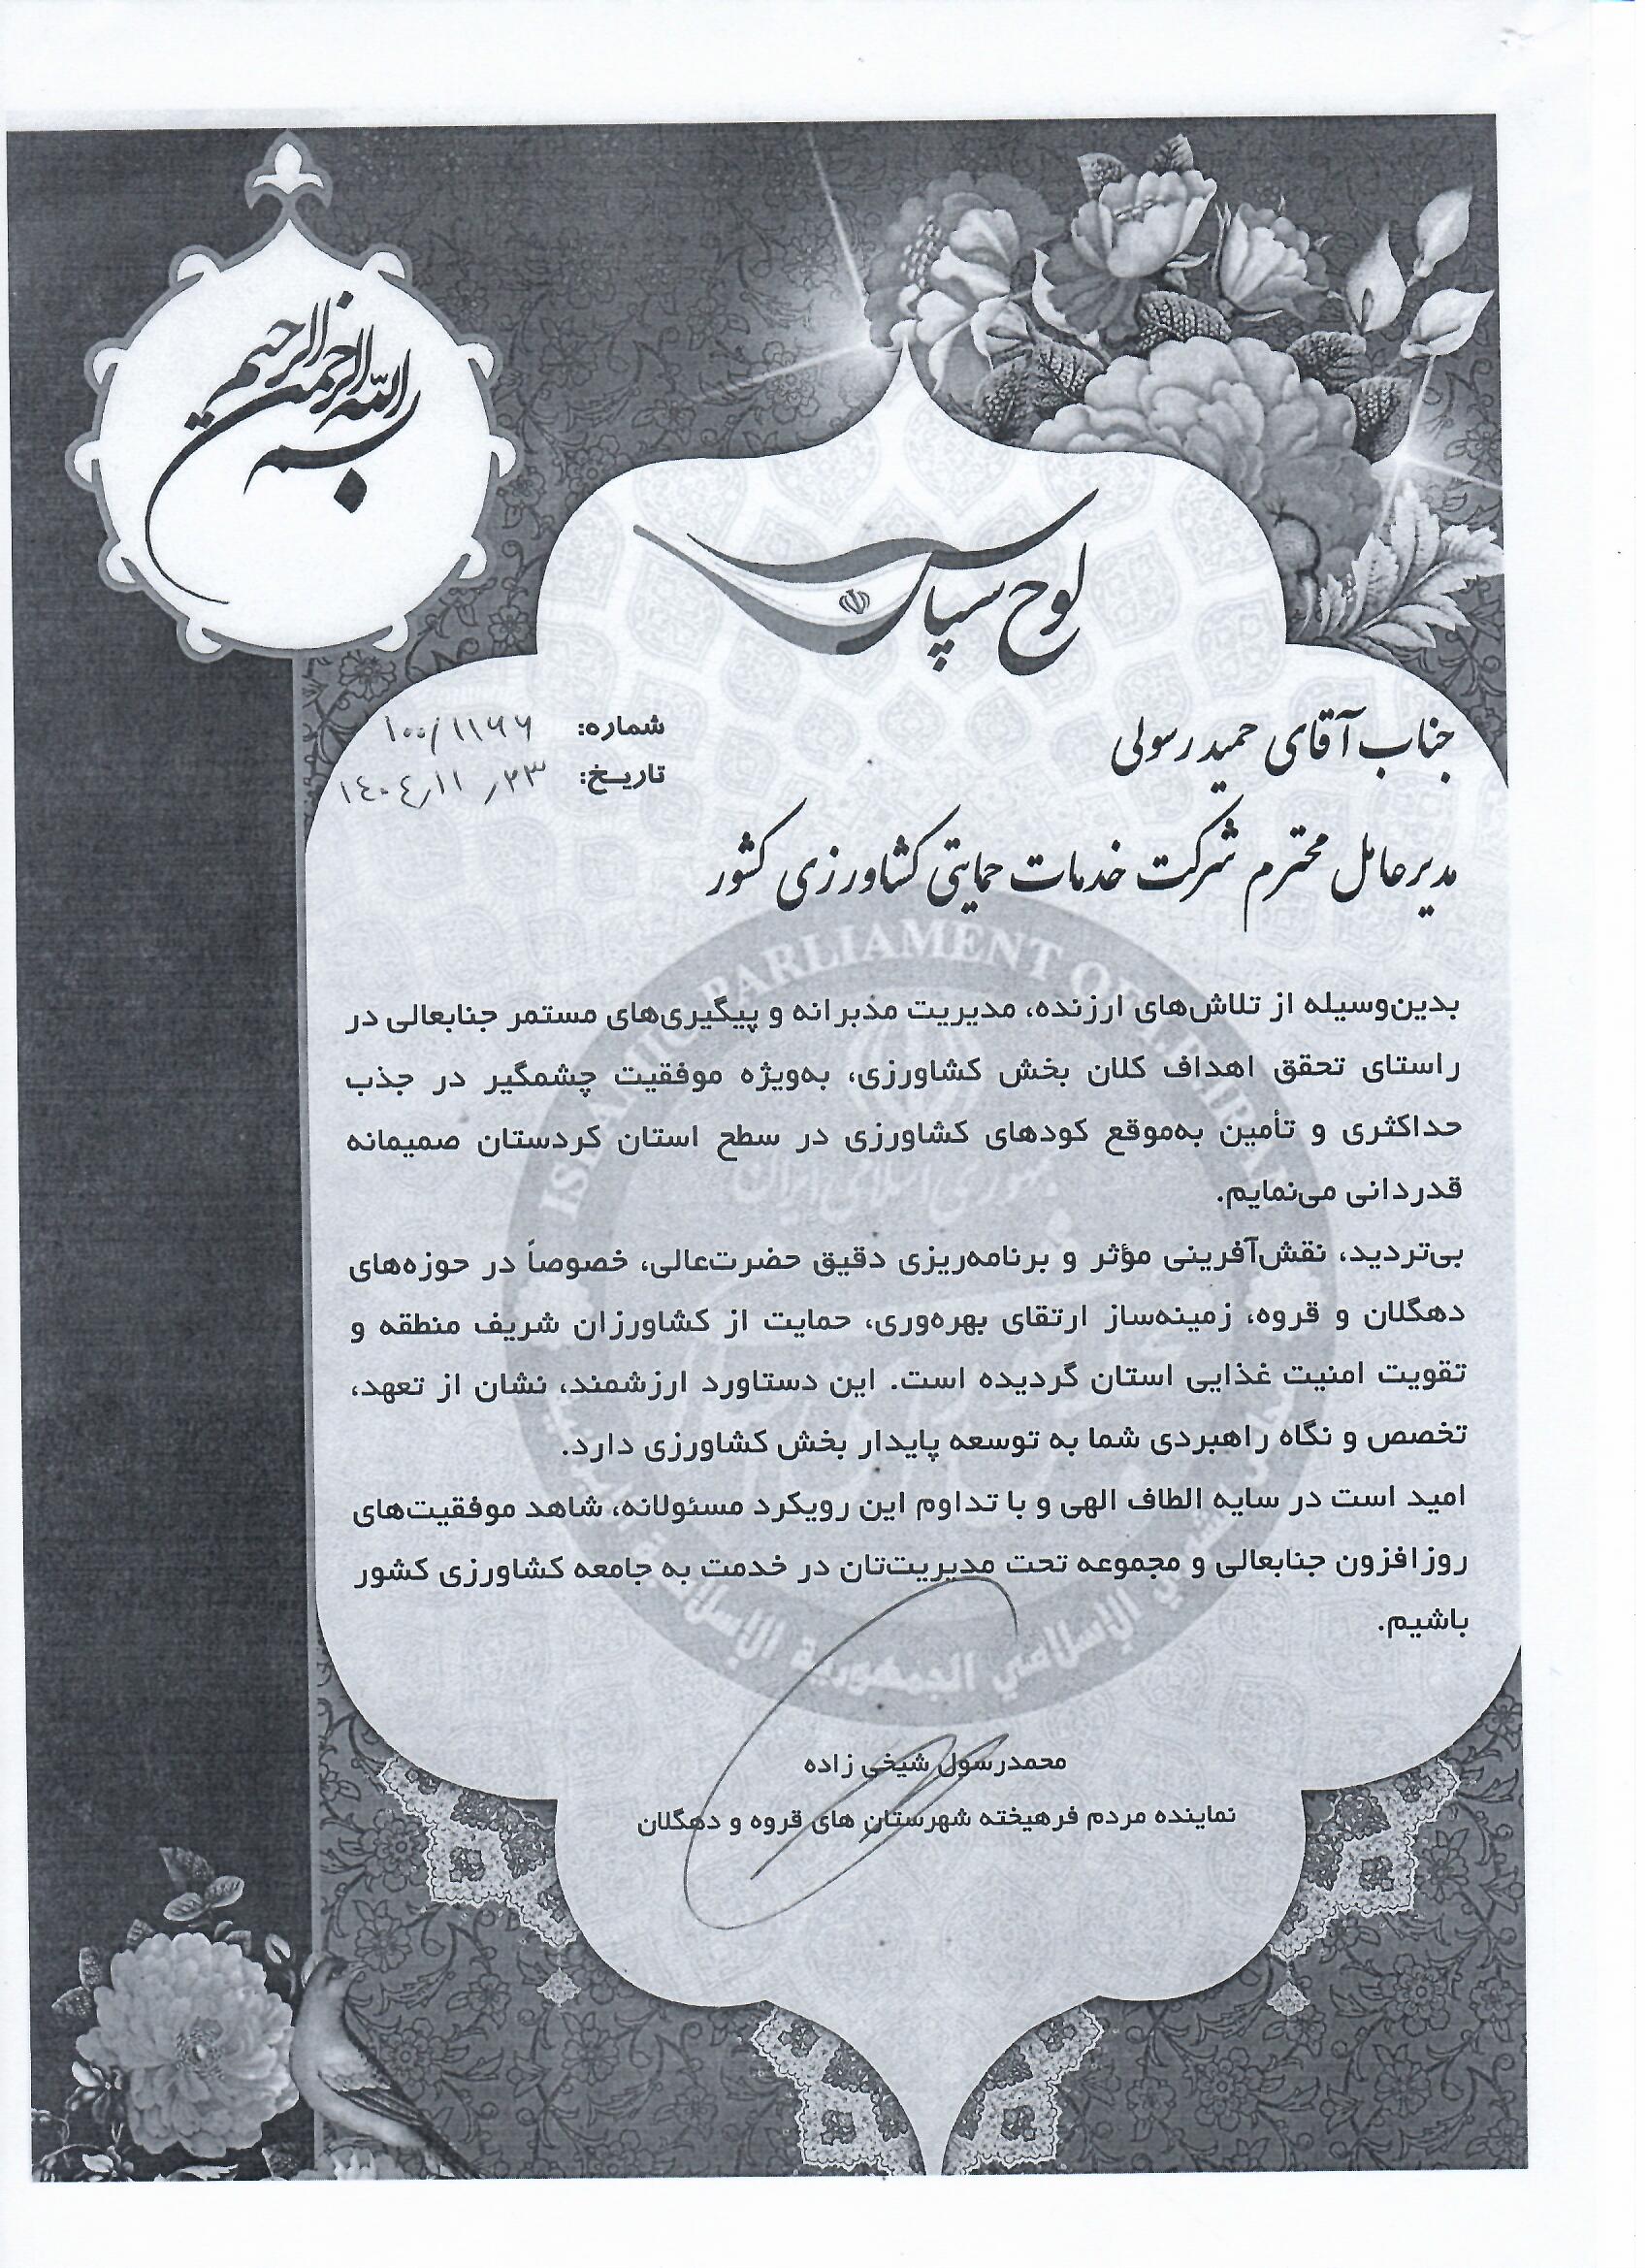 بسم الله الرحمن الرحیم
لوح سپاس
شماره: ۱۰۰/۱۱۶۶
تاریخ: ۱۴۰۴/۱۱/۲۳
جناب آقای حمید رسولی
مدیرعامل محترم شرکت خدمات حمایتی کشاورزی کشور
بدین‌وسیله از تلاش‌های ارزنده، مدیریت مدبرانه و پیگیری‌های مستمر جنابعالی در
راستای تحقق اهداف کلان بخش کشاورزی، به‌ویژه موفقیت چشمگیر در جذب
حداکثری و تأمین به‌موقع کودهای کشاورزی در سطح استان کردستان صمیمانه
قدردانی می‌نمایم.
بی‌تردید، نقش‌آفرینی مؤثر و برنامه‌ریزی دقیق حضرت‌عالی، خصوصاً در حوزه‌های
دهگلان و قروه، زمینه‌ساز ارتقای بهره‌وری، حمایت از کشاورزان شریف منطقه و
تقویت امنیت غذایی استان گردیده است. این دستاورد ارزشمند، نشان از تعهد،
تخصص و نگاه راهبردی شما به توسعه پایدار بخش کشاورزی دارد.
امید است در سایه الطاف الهی و با تداوم این رویکرد مسئولانه، شاهد موفقیت‌های
روزافزون جنابعالی و مجموعه تحت مدیریت‌تان در خدمت به جامعه کشاورزی کشور
باشیم.
محمدرسول شیخی زاده
نماینده مردم فرهیخته شهرستان های قروه و دهگلان
ISLAMIC PARLIAMENT OF I.R.IRAN